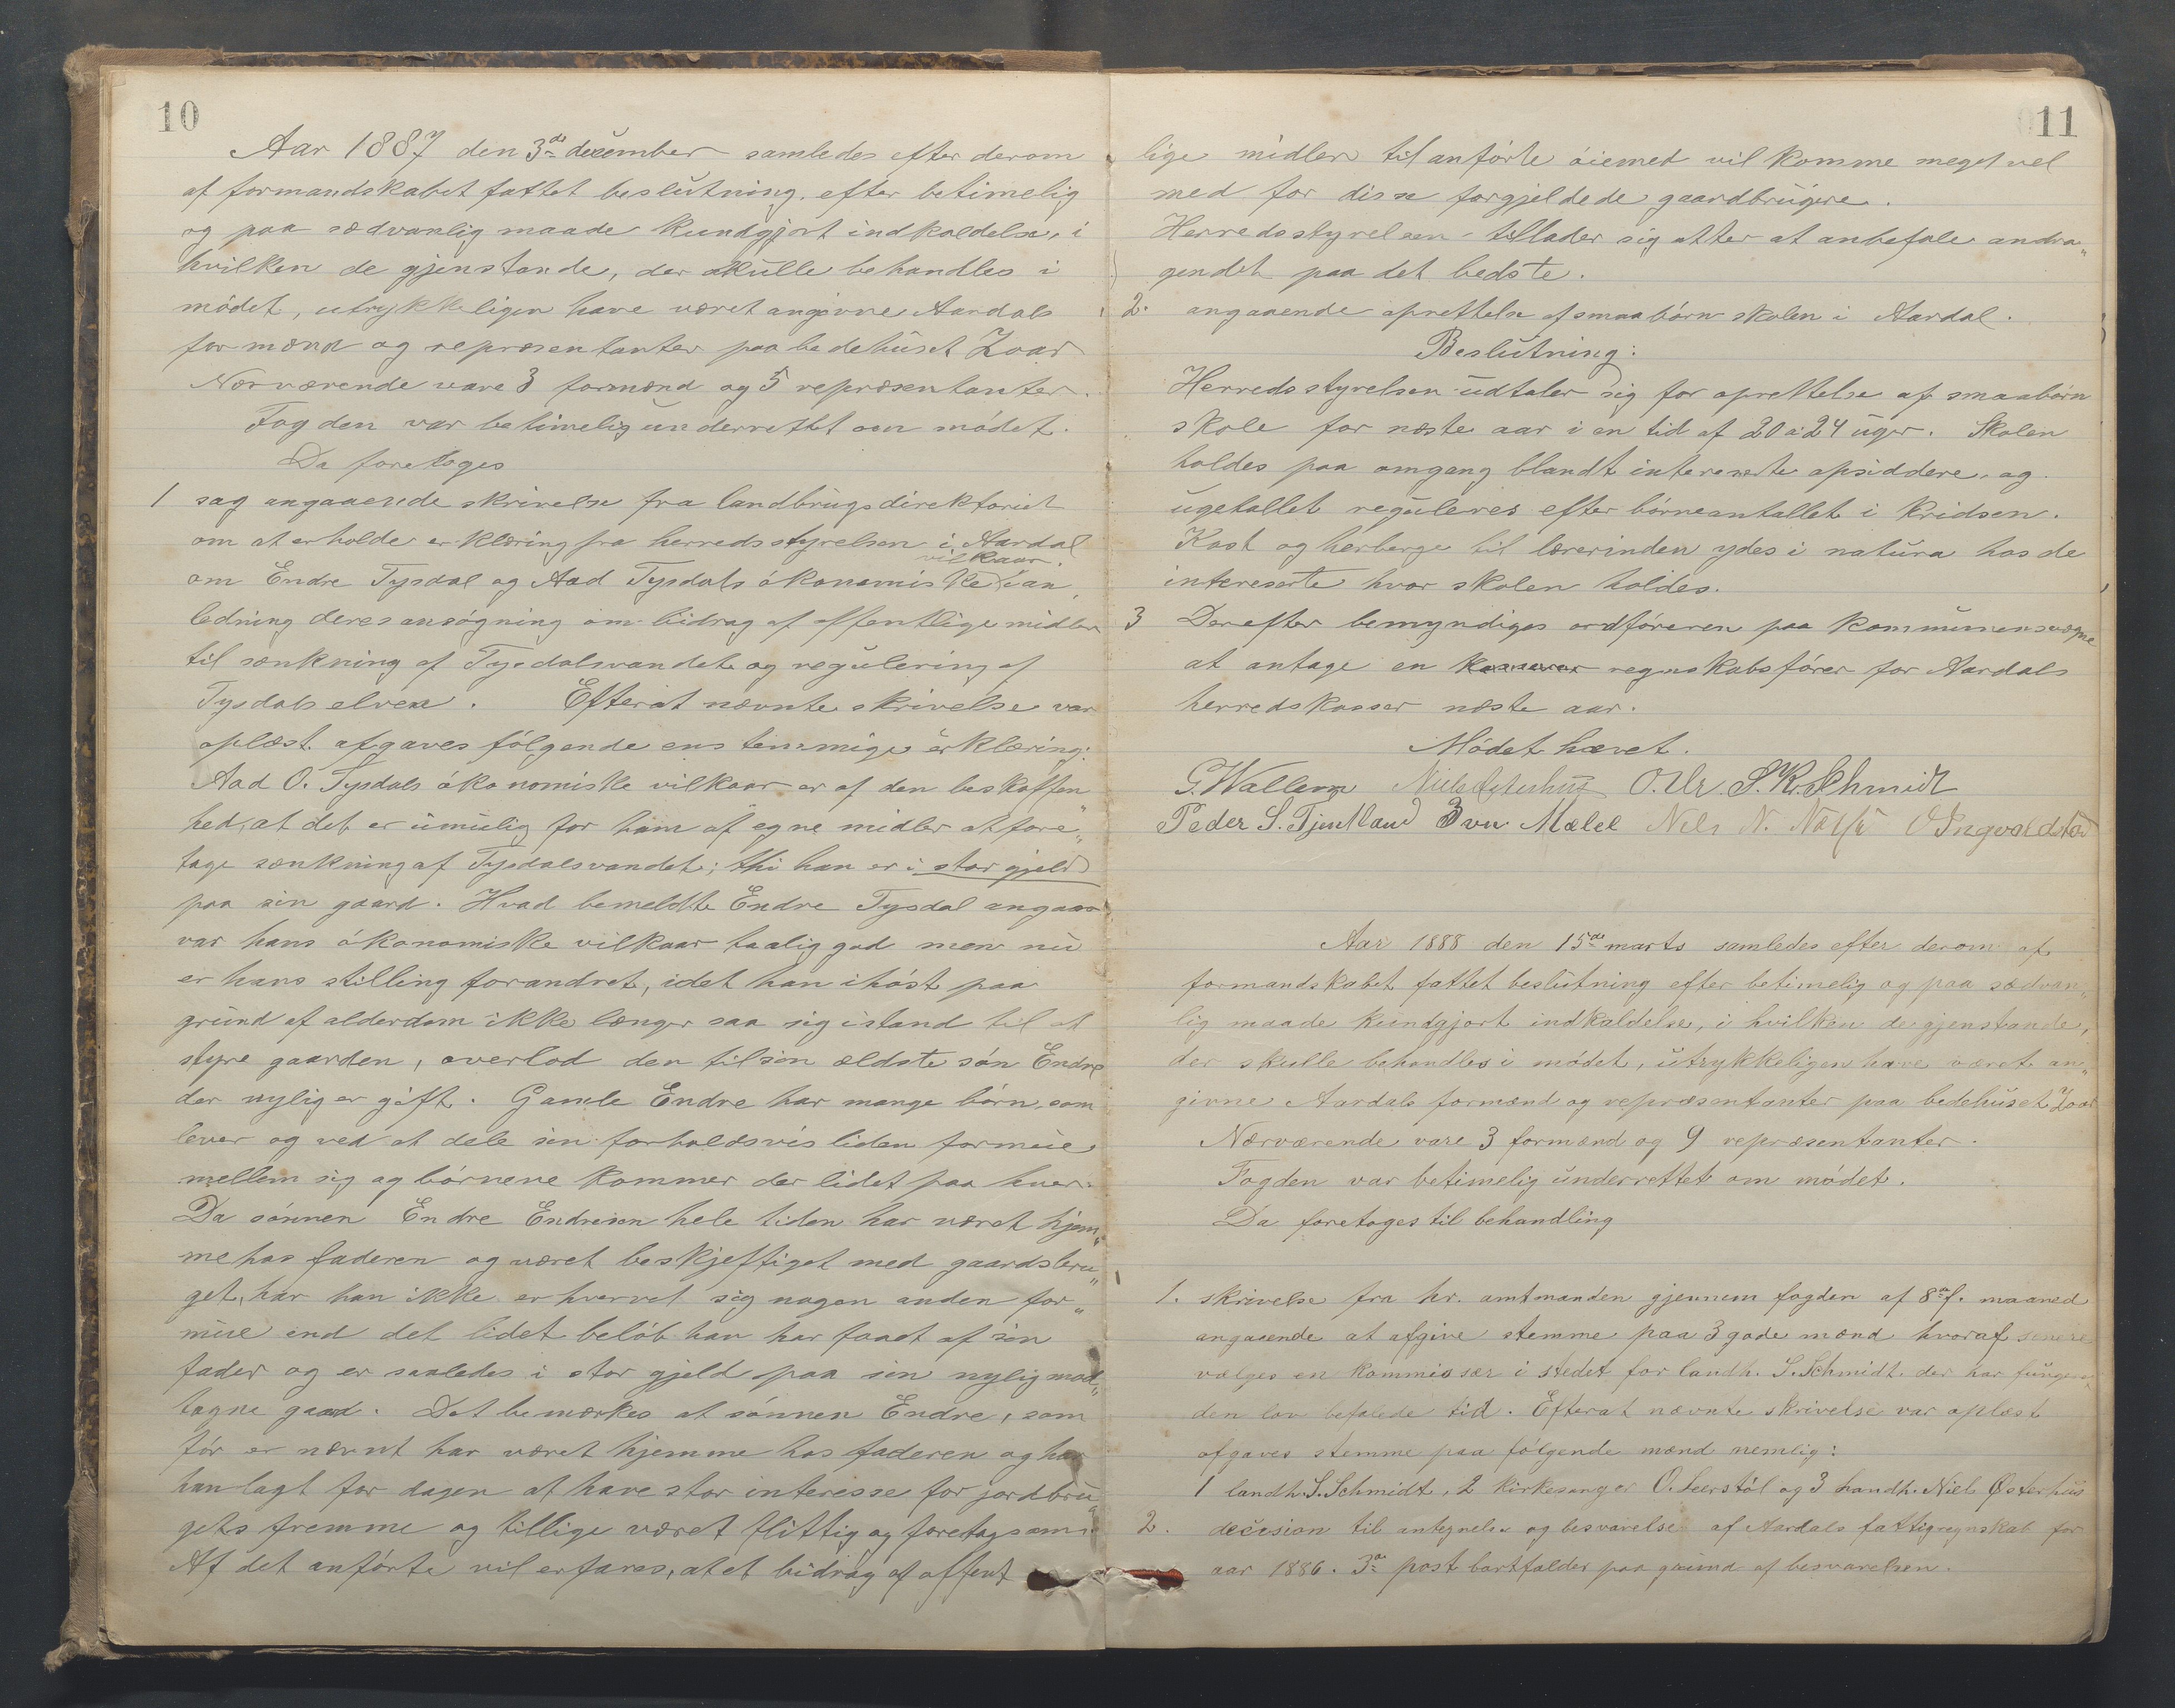 10
Aar 1887 den 3die december samledes efter derom
af formandskabet fattet beslutning, efter betimelig
og paa sædvanlig maade kundgjort indkaldelse, i
hvilken de gjenstande, der skulle behandles i
mödet, utrykkeligen have været angivne Aardals
formænd og repræsentanter paa bedehuset Zoar
Nærværende vare 3 formænd og 5 repræsentanter.
Fogden var betimelig underrettet om mödet.
Da foretoges
1 sag angaaende skrivelse fra landbrugsdirektoriet
om at erholde erklæring fra herredsstyrelsen i Aardal
vilkaar
om Endre Tysdal og Aad Tysdals ökonomiske i an„
ledning deres ansögning om bidrag af offentlige midler
til sænkning af Tysdalsvandet og regulering af
Tysdalselven. Efterat nævnte skrivelse var
oplæst afgaves fölgende enstemmige erklæring:
Aad O. Tysdals ökonomiske vilkaar er af den beskaffen
hed, at det er umulig for ham af egne midler at fore„
tage sænkning af Tysdalsvandet; thi han er i stor gjeld
paa sin gaard. Hvad bemeldte Endre Tysdal angaar
var hans ökonomiske vilkaar taalig god men nu
er hans stilling forandret, idet han ihöst paa
grund af alderdom ikke længer saa sig istand til at
styre gaarden, overlod den til sin ældste sön Endre
der nylig er gift. Gamle Endre har mange börn, som
lever og ved at dele sin forholdsvis liden formue
mellem sig og börnene kommer der lidet paa hver.
Da sönnen Endre Endresen hele tiden har været hjem„
me hos faderen og været beskjeftiget med gaardsbru„
get, har han ikke erhvervet sig nogen anden for„
mue end det lidet belöb han har faaet af sin
fader og er saaledes i stor gjeld paa sin nylig mod„
tagne gaard. Det bemærkes at sönnen Endre, som
för er nævnt har været hjemme hos faderen og har
han lagt for dagen at have stor interesse for jordbru„
gets fremme og tillige været flittig og foretagsom.
Af det anförte vil erfares, at et bidrag af offent
11
lige midler til anförte öiemet vil komme meget vel
med for disse forgjeldede gaardbrugere.
Herredsstyrelsen tillader sig atter at anbefale andra„
gendet paa det bedste.
2. angaaende oprettelse af smaabörnskolen i Aardal.
Beslutning:
Herredsstyrelsen udtaler sig for oprettelse af smaabörn
skole for næste aar i en tid af 20 a 24 uger. Skolen
holdes paa omgang blandt intereserte opsiddere, og
ugetallet reguleres efter börneantallet i kridsen.
Kost og herberge til lærerinden ydes i natura hos de
intereserte hvor skolen holdes.
3 Derefter bemyndiges ordföreren paa kommunens vegne
at antage en regnskabsförer for Aardals
herredskasser næste aar.
Mödet hævet.
G. Wallem Niels Østerhus O. Ur S. K. Schmidt
Peder S. Tjentland Iver Mæle Nils N. O Ingvaldstad
Aar 1888 den 15de marts samledes efter derom af
formandskabet fattet beslutning efter betimelig og paa sædvan„
lig maade kundgjort indkaldelse, i hvilken de gjenstande,
der skulle behandles i mödet, utrykkeligen have været an„
givne Aardals formænd og repræsentanter paa bedehuset Zoar
Nærværende vare 3 formænd og 9 repræsentanter.
Fogden var betimelig underrettet om mödet.
Da foretoges til behandling
1. skrivelse fra hr. amtmanden gjennem fogden af 8de f. maaned
angaaende at afgive stemme paa 3 gode mænd hvoraf senere
vælges en kommissær i stedet for landh. S. Schmidt der har fungeret
den lov befalede tid. Efterat nævnte skrivelse var oplæst
afgaves stemme paa fölgende mænd nemlig:
1 landh. S. Schmidt, 2 kirkesanger O. Leerstöl og 3 handh. Niels Østerhus
2. decision til antegnelse og besvarelse af Aardals fattigregnskab for
aar 1886. 3die post bortfalder paa grund af besvarelsen.